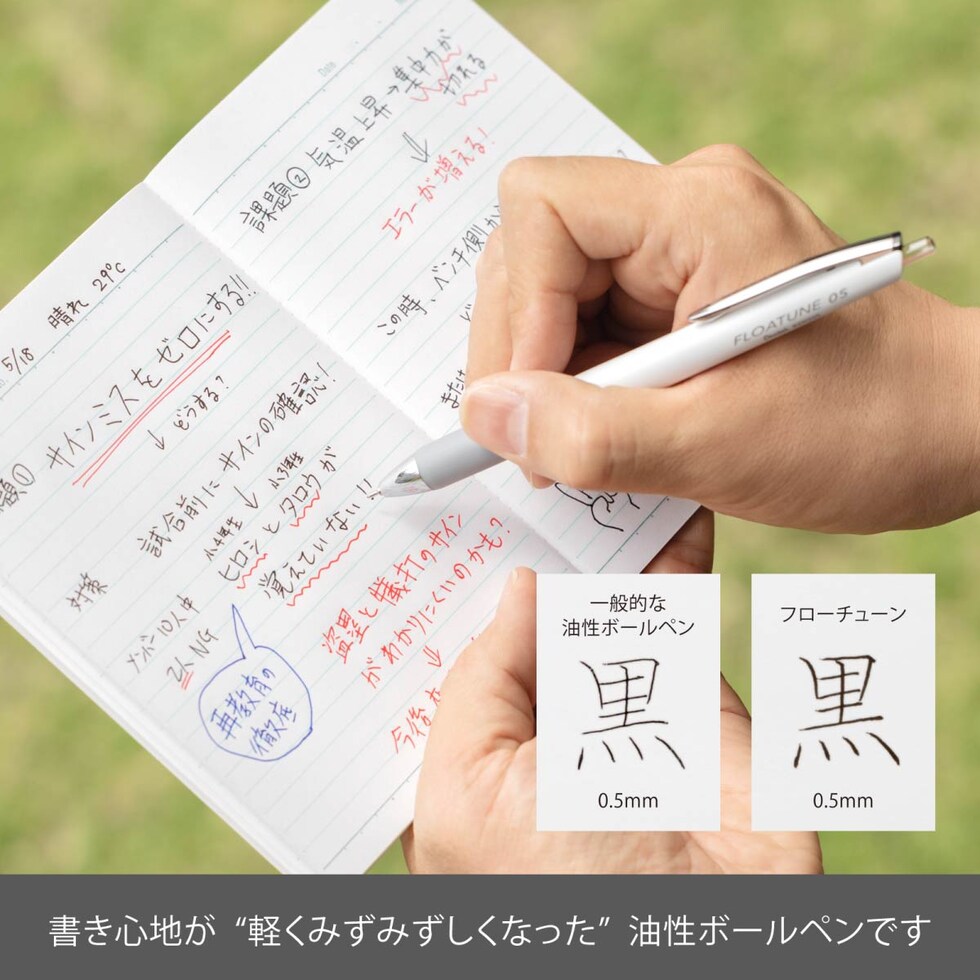 Date
課題② 気温上昇→集中力が
切れる
エラーが増える!
この時、ベンチ側が
または
5/18
晴れ 29℃
題① サインミスをゼロにする!!
どうする?
対策
試合前にサインの確認!
小4年生 小3年生
ヒロシとタロウが
覚えていない!!
メンバー10人中
2人NG
再教育の
徹底
盗塁と犠打のサイン
がわかりにくいのかも?
今後
FLOATUNE 05
一般的な
油性ボールペン
黒
0.5mm
フローチューン
黒
0.5mm
書き心地が “軽くみずみずしくなった” 油性ボールペンです